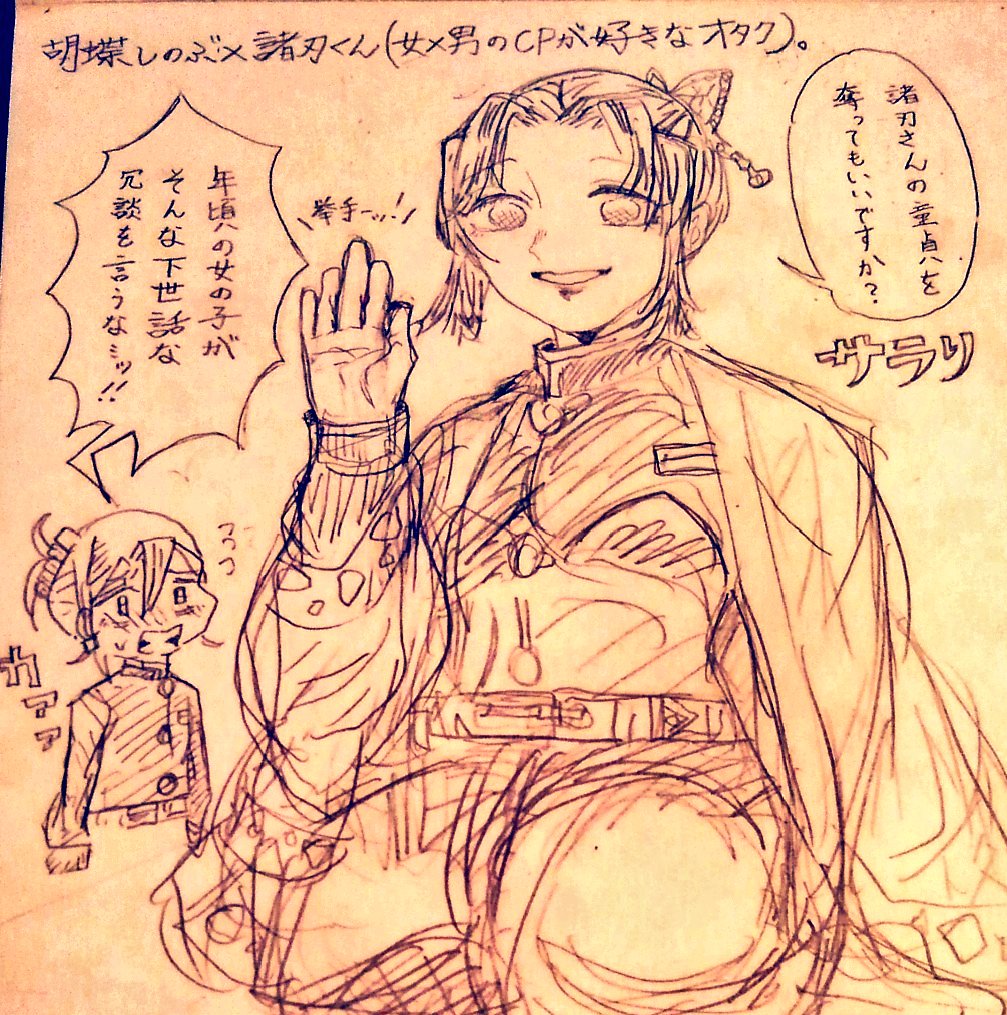 胡蝶しのぶ×諸刃くん(女×男のCPが好きなオタク)。
諸刃さんの童貞を
奪ってもいいですか?
サラリ
挙手ーッ!
年頃の女の子が
そんな下世話な
冗談を言うなミッ!!
カアァァ